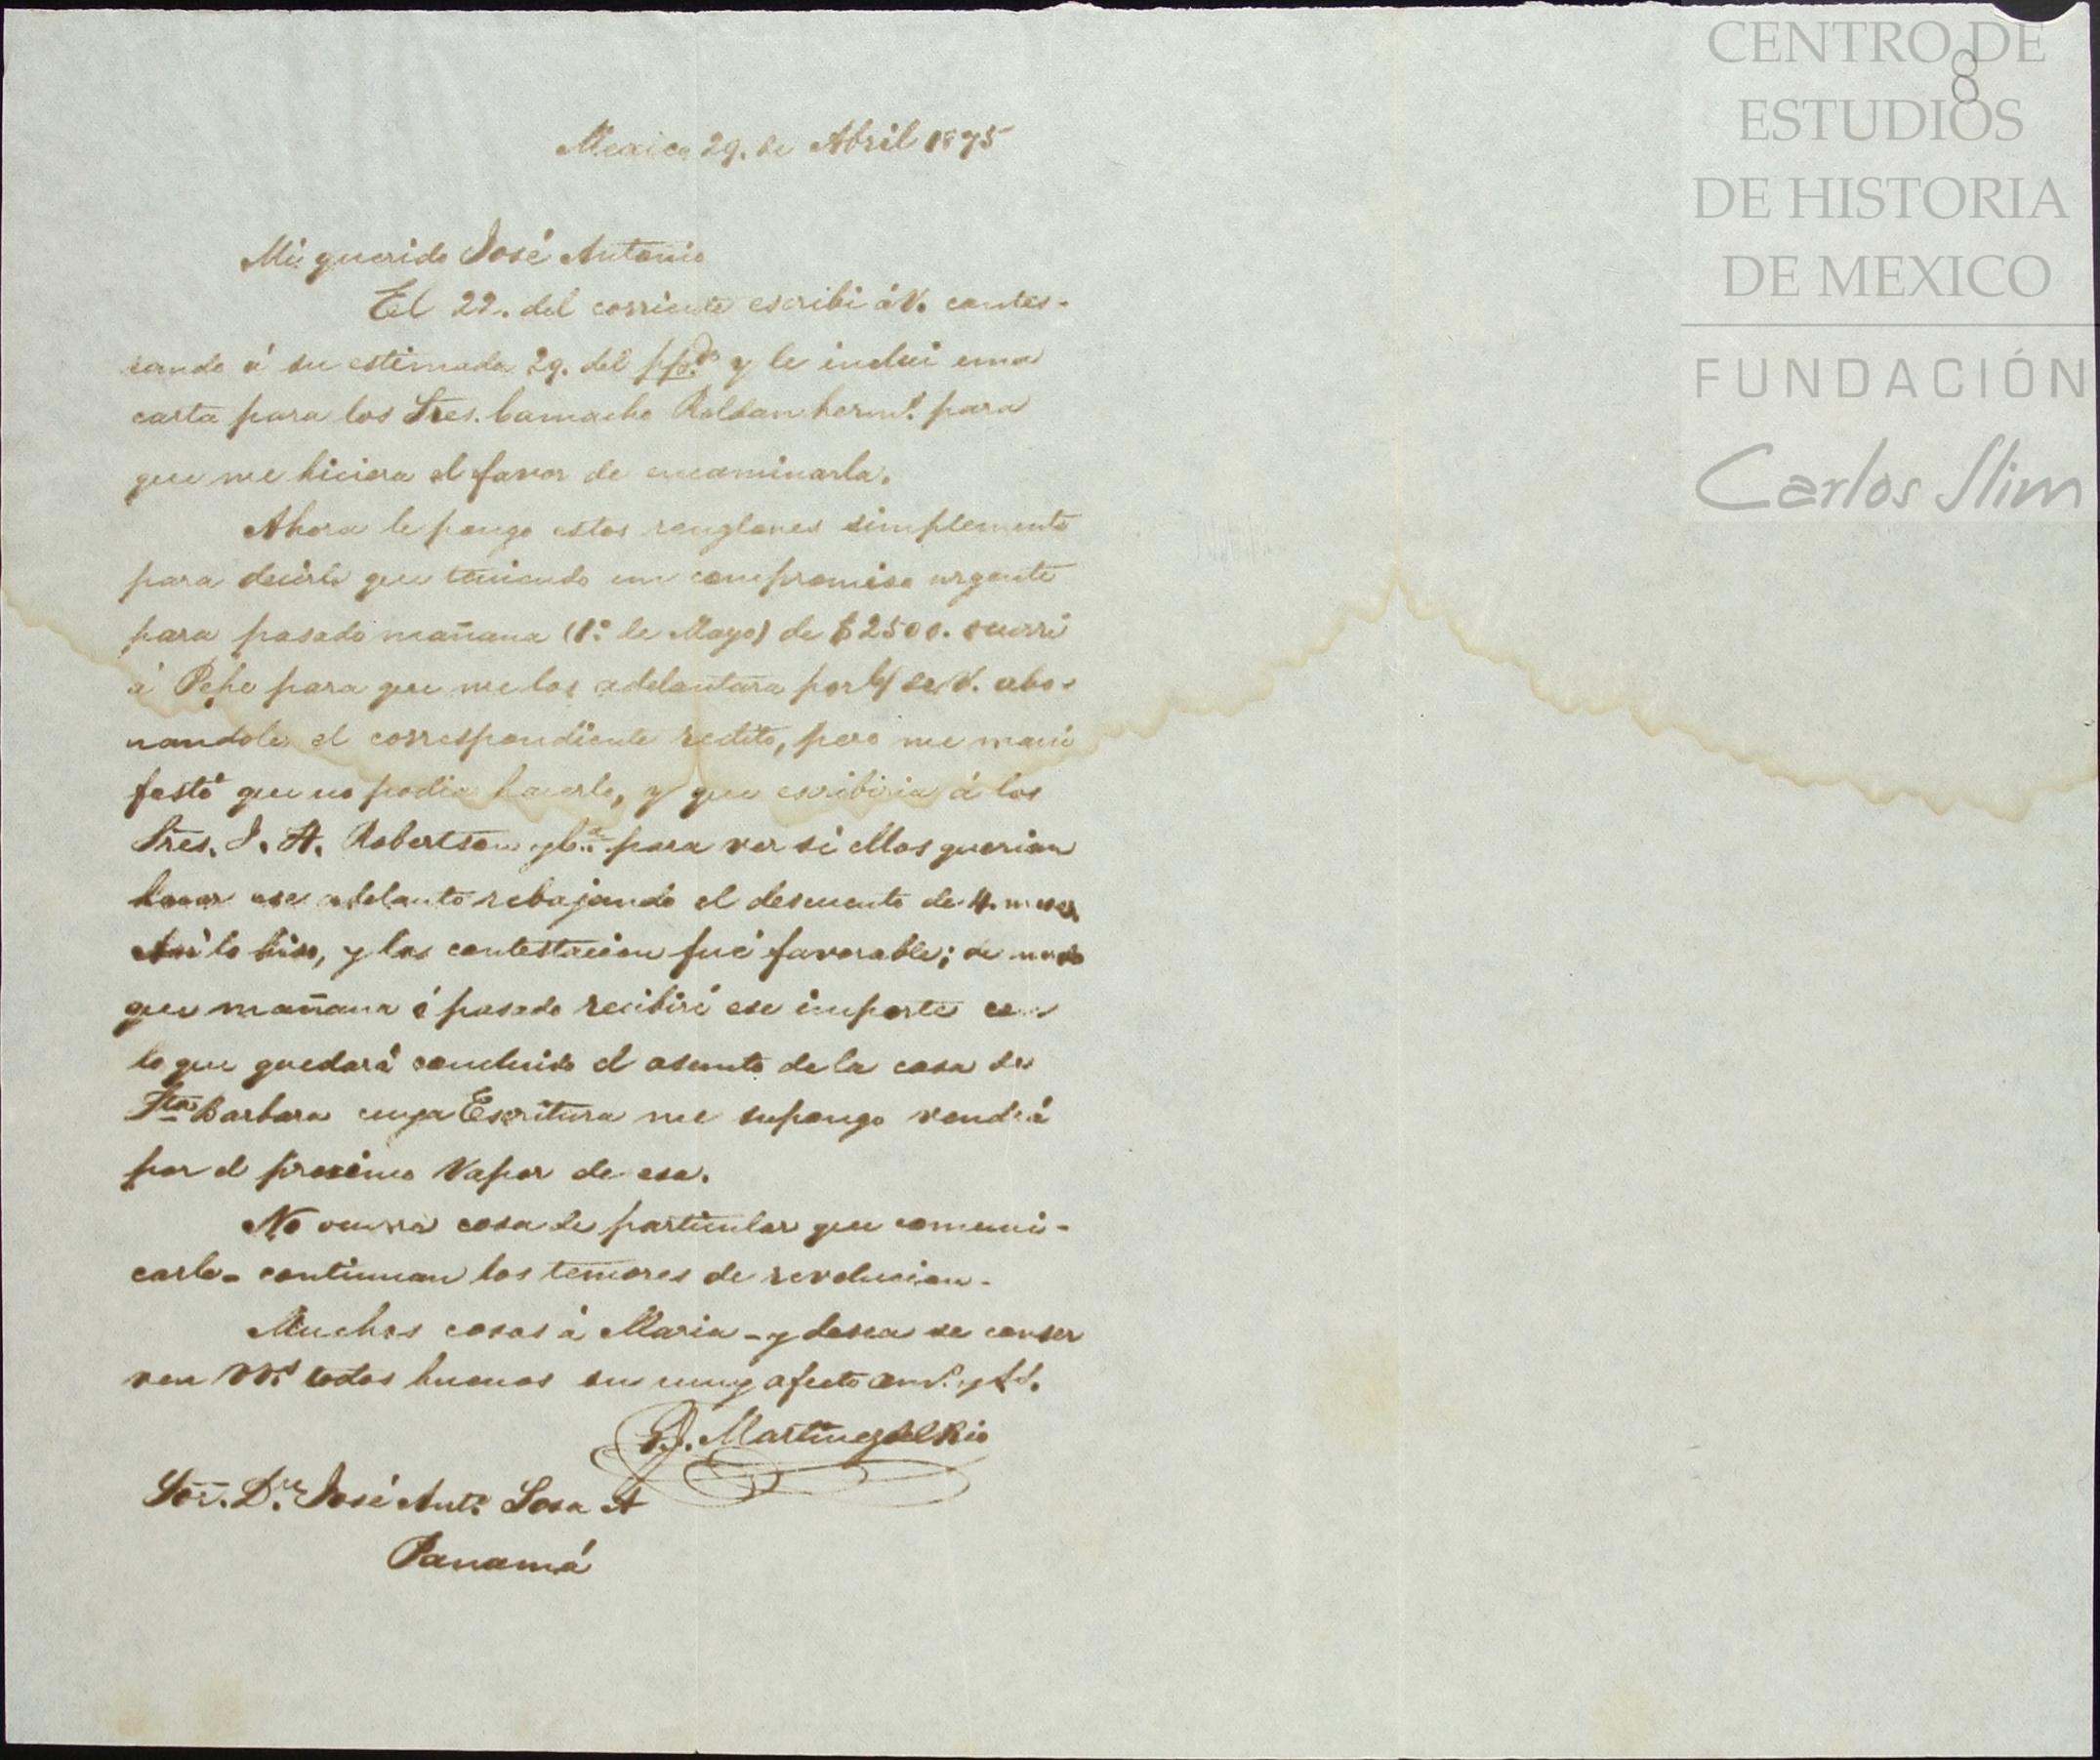 CENTRO DE
ESTUDIOS
DE HISTORIA
DE MEXICO
FUNDACIÓN
Carlos Slim
8
Mexico 29. de Abril 1875
Mi querido José Antonio
El 22. del corriente escribi á V. contes-
tando á su estimada 29. del ppdo. y le inclui una
carta para los Sres. Camacho Roldan herms. para
que me hiciera el favor de encaminarla.
Ahora le pongo estos renglones simplemente
para decirle que teniendo un compromiso urgente
para pasado mañana (1º de Mayo) de $2500. ocurri
á Pepe para que me los adelantara por c/ de V. abo-
nandole el correspondiente redito, pero me mani
festó que no podia hacerlo, y que escribiria á los
Sres. J. A. Robertson y Ca. para ver si ellos querian
hacer ese adelanto rebajando el descuento de 4. meses.
Asi lo hiso, y la contestacion fué favorable; de modo
que mañana ó pasado recibiré ese importe con
lo que quedará concluido el asunto de la casa de
Sta Barbara cuya Escritura me supongo vendrá
por el procsimo Vapor de esa.
No ocurre cosa de particular que comuni-
carle - continuan los temores de revolucion -
Muchas cosas á Maria - y desea se conser
ven VVs. todos buenos su muy afecto am. y S.S.
Martinez del Rio
Sor. Dn. José Anto. Sosa A
Panamá